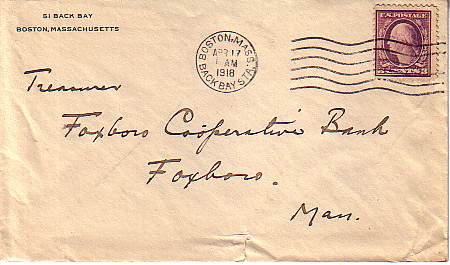 51 BACK BAY
BOSTON, MASSACHUSETTS
BOSTON, MASS.
APR 17
AM
1918
BACK BAY STA.
U.S. POSTAGE
3 CENTS 3
Treasurer
Foxboro Coöperative Bank
Foxboro.
Mass.